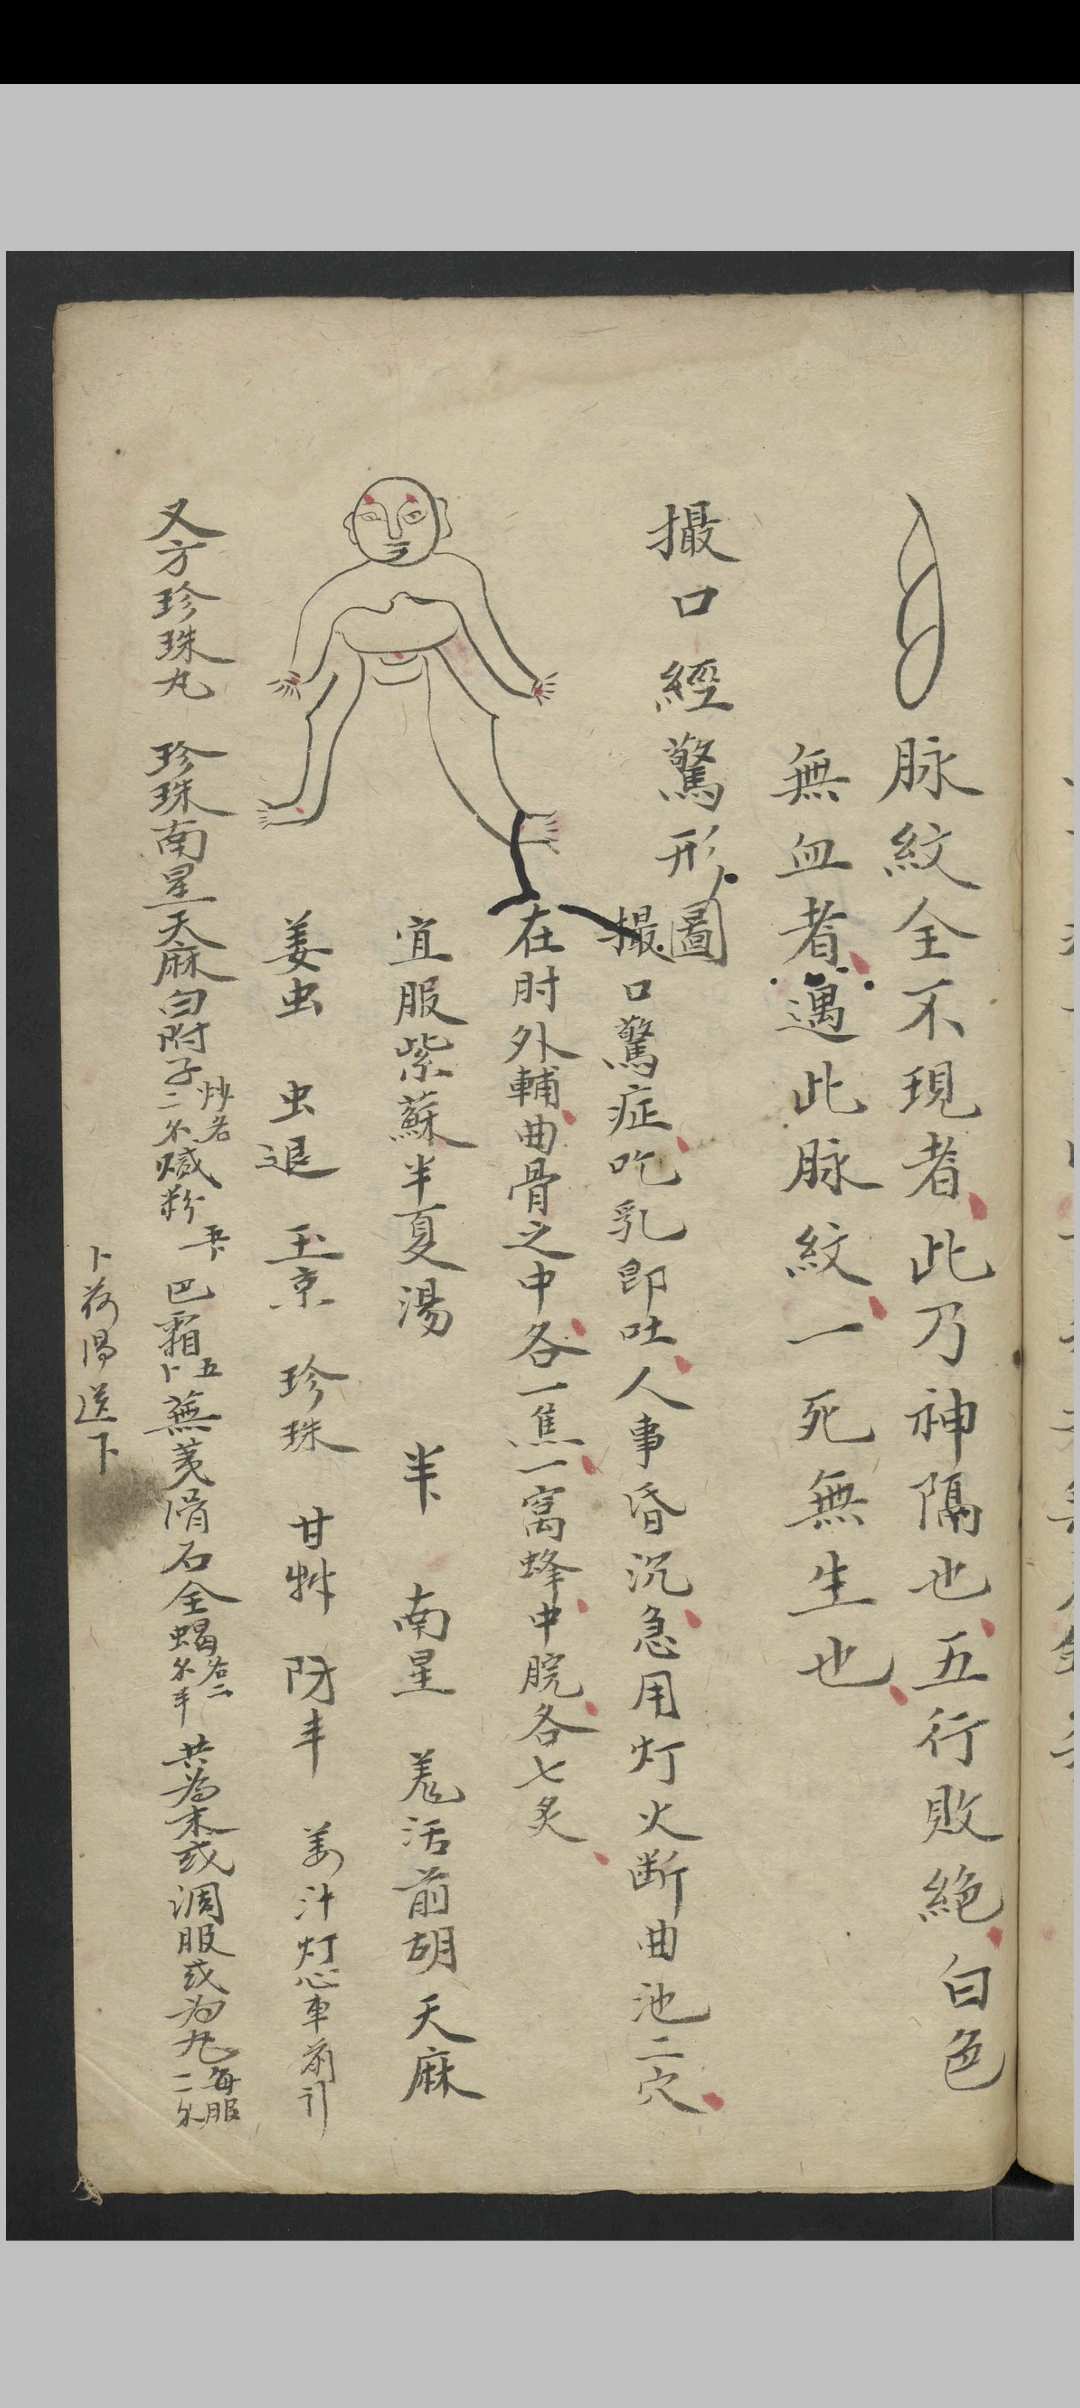 脉紋全不現者此乃神隔也五行敗絶白色
無血者遇此脉紋一死無生也
撮口經驚形圖
撮口驚症吃乳即吐人事昏沉急用灯火断曲池二穴
在肘外輔曲骨之中各一焦一窩蜂中脘各七炙
宜服紫蘇半夏湯 半下 南星 羌活前胡天麻
姜虫 虫退 玉京 珍珠 甘艸 防丰 姜汁灯心車前引
又方珍珠丸 珍珠南星天麻白附子炒各二分 粉 巴霜五卜蕪荑滑石全蝎各二分半 共為末或调服或为丸每服二分
卜荷湯送下